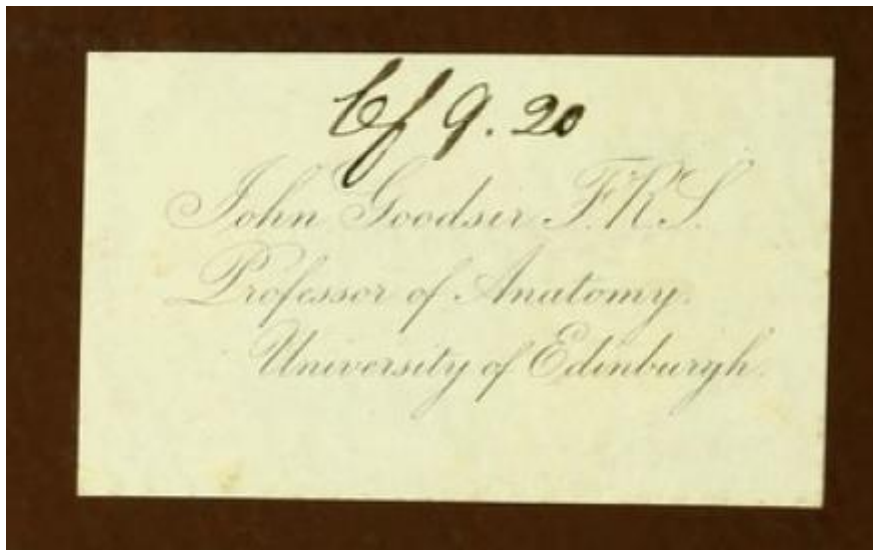 Cf 9.20
John Goodsir F.R.S.
Professor of Anatomy.
University of Edinburgh.